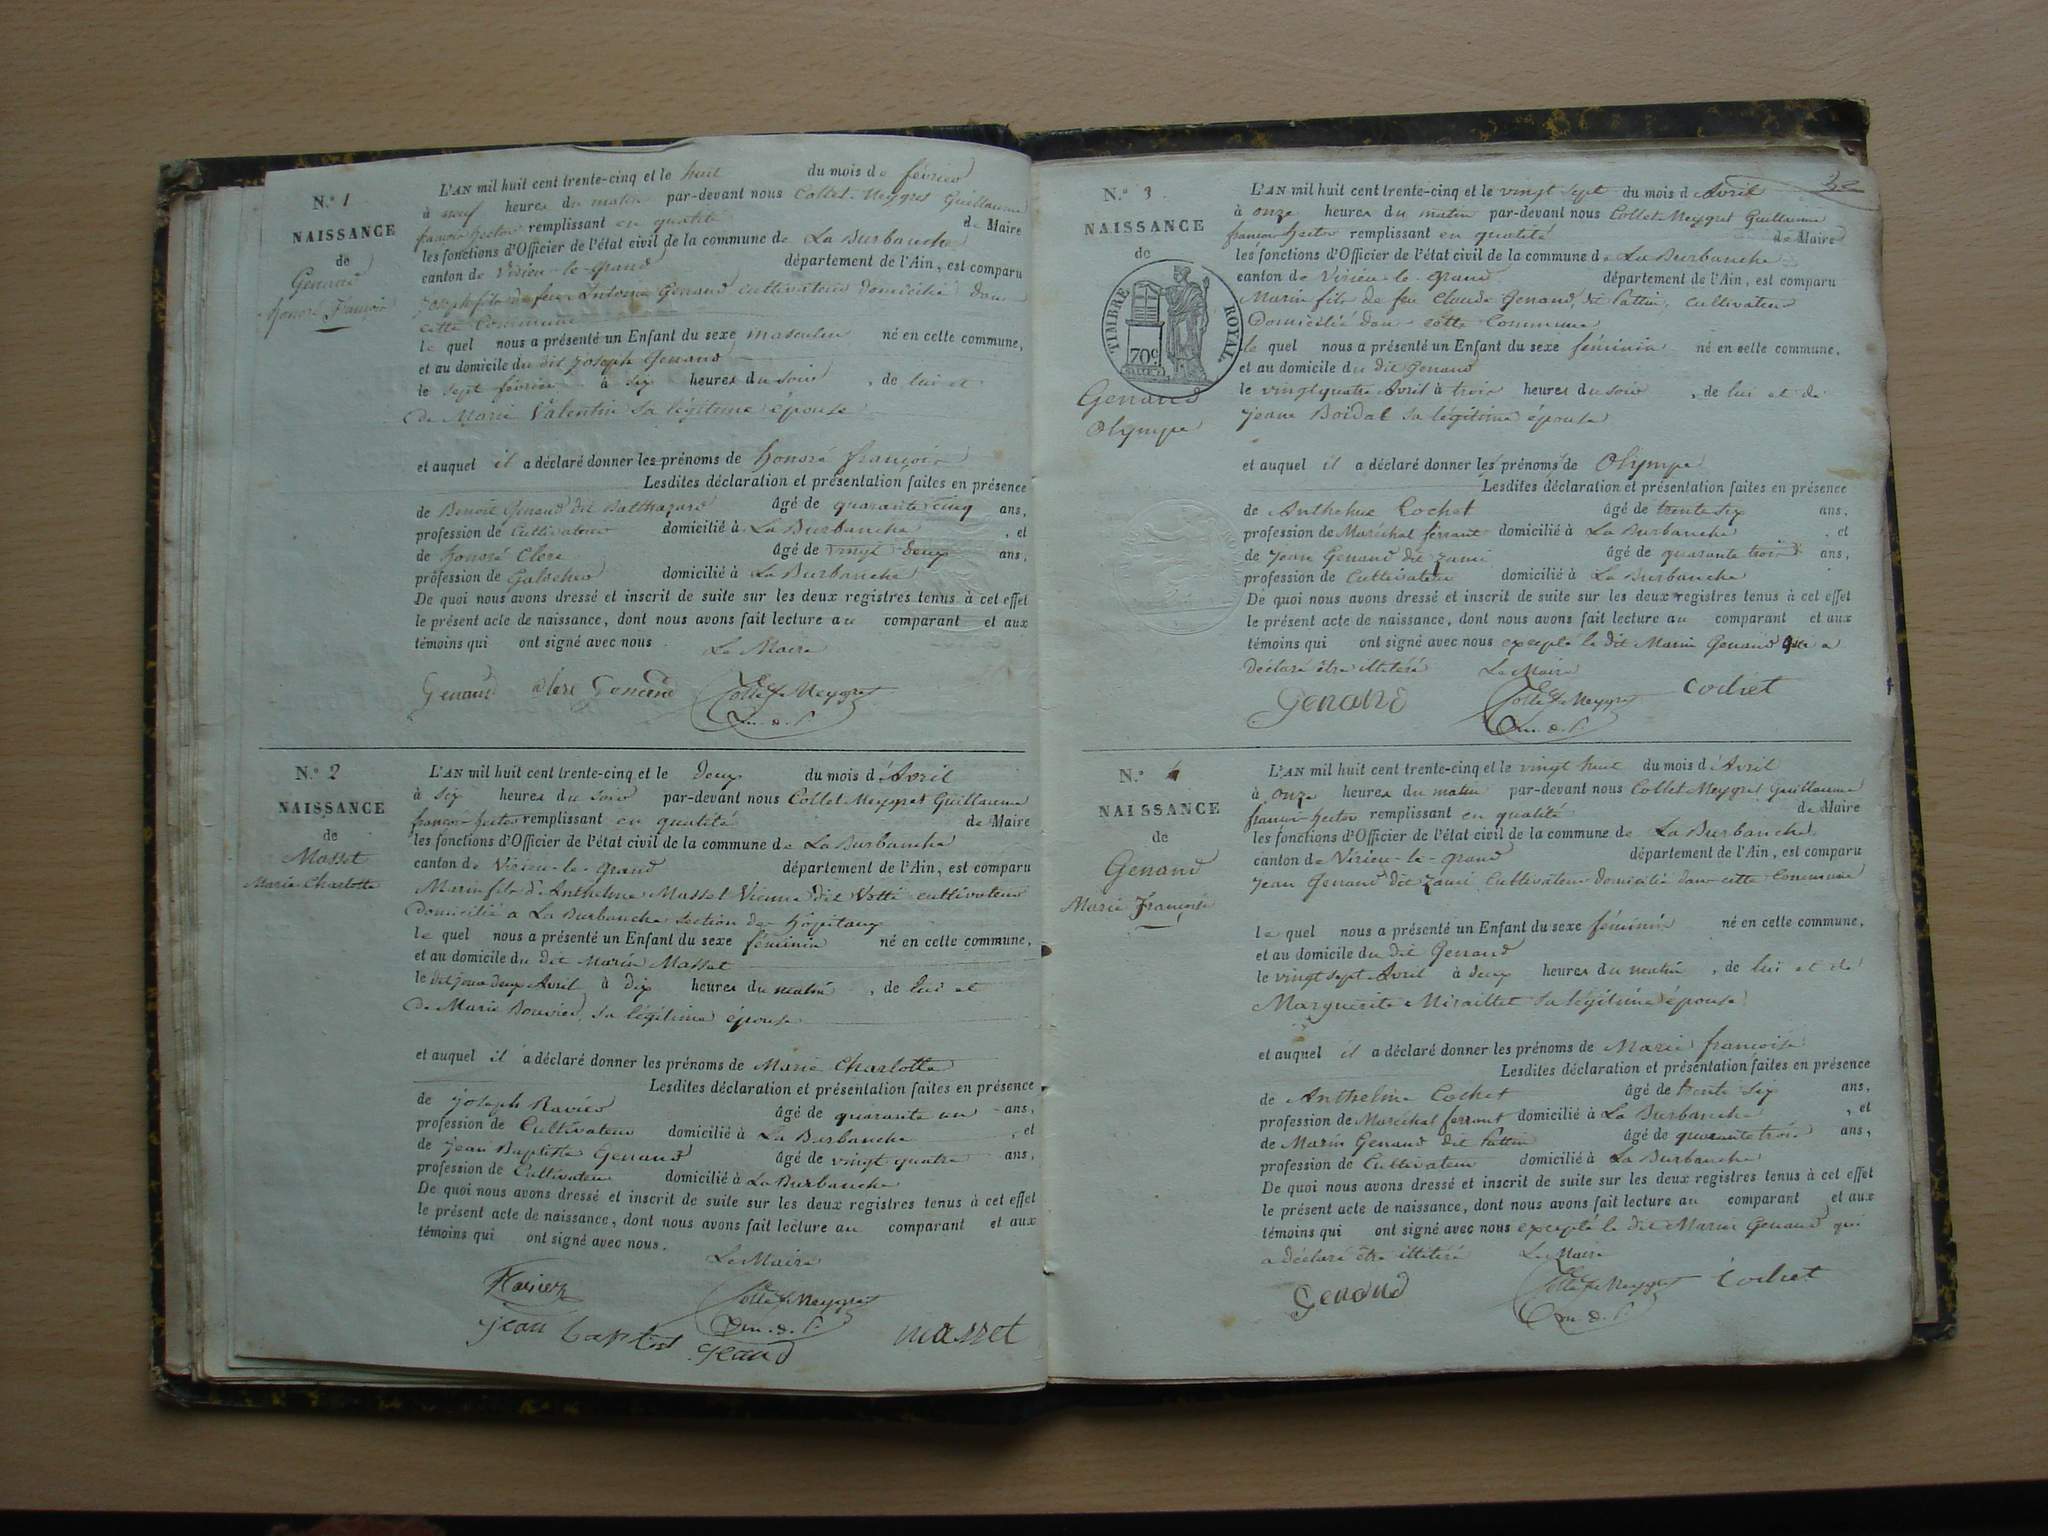 N.° 1
NAISSANCE
de
Genand
honoré François
L'AN mil huit cent trente-cinq et le huit du mois de février
à neuf heures du matin par-devant nous Collet-Meygret Guillaume
françois hector remplissant en qualité de Maire
les fonctions d'Officier de l'état civil de la commune de La Burbanche
canton de Virieu-le-grand département de l'Ain, est comparu
Joseph fils de feu Antoine Genand cultivateur domicilié dans
cette Commune
le quel nous a présenté un Enfant du sexe masculin né en cette commune,
et au domicile du dit Joseph Genand
le sept février à six heures du soir, de lui et
de Marie Valentin sa légitime épouse
et auquel il a déclaré donner les prénoms de honoré françois
Lesdites déclaration et présentation faites en présence
de Benoit Genand dit Balthazard âgé de quarante cinq ans,
profession de Cultivateur domicilié à La Burbanche, et
de honoré Clere âgé de vingt deux ans,
profession de Galocher domicilié à La Burbanche
De quoi nous avons dressé et inscrit de suite sur les deux registres tenus à cet effet
le présent acte de naissance, dont nous avons fait lecture au comparant et aux
témoins qui ont signé avec nous.
Le Maire
Genand Clere Collet-Meygret
N.° 2
NAISSANCE
de
Masset
Marie Charlotte
L'AN mil huit cent trente-cinq et le deux du mois d'Avril
à six heures du soir par-devant nous Collet Meygret Guillaume
françois hector remplissant en qualité de Maire
les fonctions d'Officier de l'état civil de la commune de La Burbanche
canton de Virieu-le-grand département de l'Ain, est comparu
Marin fils d'Anthelme Masset Vienne dit Votti cultivateur
domicilié a La Burbanche section de hôpitaux
le quel nous a présenté un Enfant du sexe féminin né en cette commune,
et au domicile du dit Marin Masset
le dit jour deux Avril à dix heures du matin, de lui et
de Marie Bouvier, sa légitime épouse
et auquel il a déclaré donner les prénoms de Marie Charlotte
Lesdites déclaration et présentation faites en présence
de Joseph Ravier âgé de quarante un ans,
profession de Cultivateur domicilié à La Burbanche, et
de Jean Baptiste Genand âgé de vingt quatre ans,
profession de Cultivateur domicilié à La Burbanche
De quoi nous avons dressé et inscrit de suite sur les deux registres tenus à cet effet
le présent acte de naissance, dont nous avons fait lecture au comparant et aux
témoins qui ont signé avec nous.
Le Maire
Ravier Collet-Meygret
jean baptist masset
32
N.° 3
NAISSANCE
de
TIMBRE ROYAL
70c
Genand
Olympe
L'AN mil huit cent trente-cinq et le vingt sept du mois d Avril
à onze heures du matin par-devant nous Collet-Meygret Guillaume
françois hector remplissant en qualité de Maire
les fonctions d'Officier de l'état civil de la commune de La Burbanche
canton de Virieu-le-grand département de l'Ain, est comparu
Marin fils de feu Claude Genand, dit Pattin, cultivateur
Domicilié dans cette Commune
le quel nous a présenté un Enfant du sexe féminin né en cette commune,
et au domicile du dit Genand
le vingt quatre Avril à trois heures du soir, de lui et de
Jeane Boidat sa légitime épouse
et auquel il a déclaré donner les prénoms de Olympe
Lesdites déclaration et présentation faites en présence
de Anthelme Cochet âgé de trente six ans,
profession de Maréchal ferrant domicilié à La Burbanche, et
de Jean Genand dit Zami âgé de quarante trois ans,
profession de Cultivateur domicilié à La Burbanche
De quoi nous avons dressé et inscrit de suite sur les deux registres tenus à cet effet
le présent acte de naissance, dont nous avons fait lecture au comparant et aux
témoins qui ont signé avec nous excepté le dit Marin Genand qui a
déclaré être illitéré Le Maire
Genand Collet-Meygret Cochet
N.° 4
NAISSANCE
de
Genand
Marie Françoise
L'AN mil huit cent trente-cinq et le vingt huit du mois d'Avril
à onze heures du matin par-devant nous Collet Meygret Guillaume
françois hector remplissant en qualité de Maire
les fonctions d'Officier de l'état civil de la commune de La Burbanche
canton de Virieu-le-grand département de l'Ain, est comparu
Jean Genand dit Zami, Cultivateur domicilié dans cette Commune
le quel nous a présenté un Enfant du sexe féminin né en cette commune,
et au domicile du dit Genand
le vingt sept Avril à deux heures du matin, de lui et de
Marguerite Miraillet sa légitime épouse
et auquel il a déclaré donner les prénoms de Marie françoise
Lesdites déclaration et présentation faites en présence
de Anthelme Cochet âgé de trente six ans,
profession de Maréchal ferrant domicilié à La Burbanche, et
de Marin Genand dit Pattin âgé de quarante trois ans,
profession de Cultivateur domicilié à La Burbanche
De quoi nous avons dressé et inscrit de suite sur les deux registres tenus à cet effet
le présent acte de naissance, dont nous avons fait lecture au comparant et aux
témoins qui ont signé avec nous excepté le dit Marin Genand qui
a déclaré être illitéré Le Maire
Genand Collet-Meygret Cochet